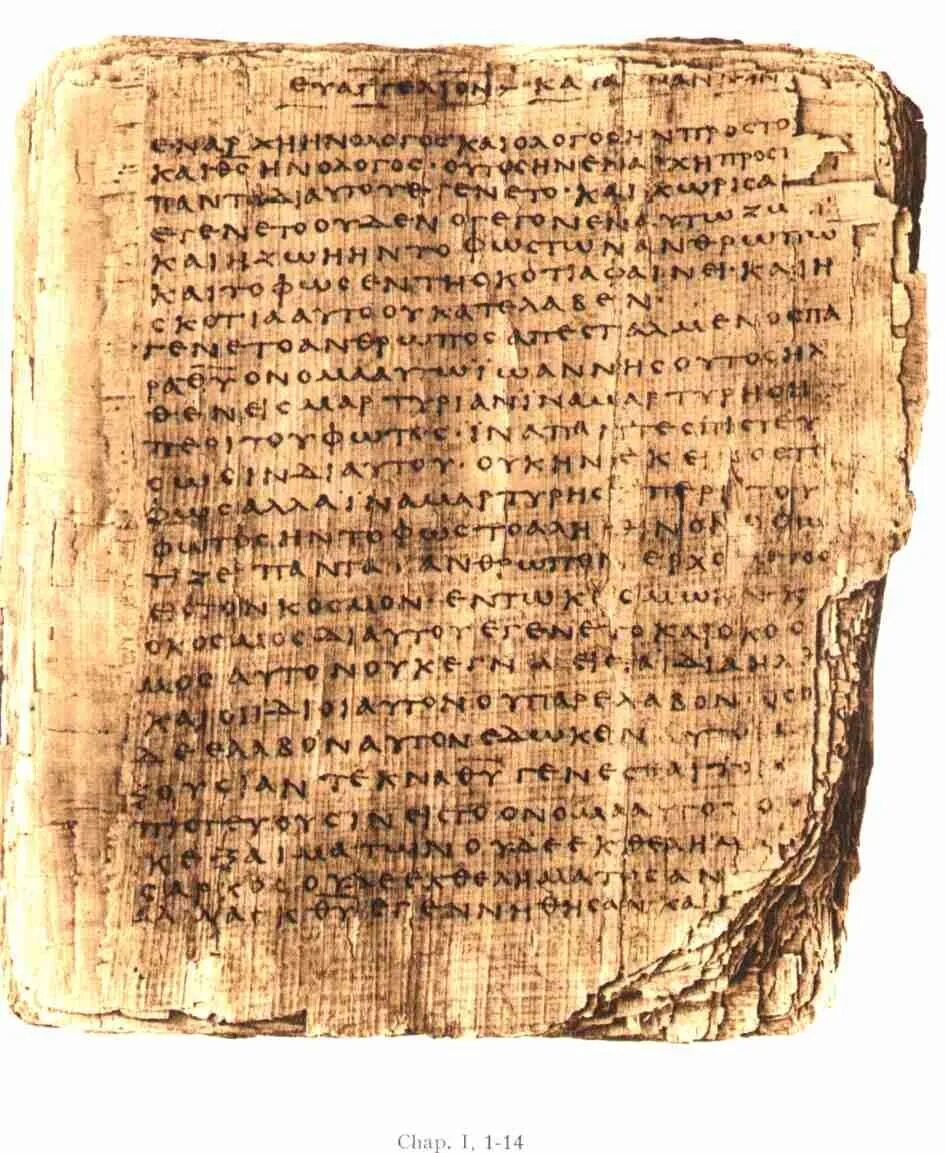 ΕΥΑΓΓΕΛΙΟΝ ΚΑΤΑ
ΕΝΑΡΧΗΗΝΟΛΟΓΟΣΚΑΙΟΛΟΓΟΣΗΝΠΡΟΣΤΟ
ΚΑΙΘΣΗΝΟΛΟΓΟΣ·ΟΥΤΟΣΗΝΕΝΑΡΧΗΠΡΟΣ
ΠΑΝΤΑΔΙΑΥΤΟΥΕΓΕΝΕΤΟ·ΚΑΙΧΩΡΙΣΑ
ΕΓΕΝΕΤΟΟΥΔΕΝΟΓΕΓΟΝΕΝΕΝΑΥΤΩΖΩ
ΚΑΙΗΖΩΗΗΝΤΟΦΩΣΤΩΝΑΝΘΡΩΠΩ
ΚΑΙΤΟΦΩΣΕΝΤΗΣΚΟΤΙΑΦΑΙΝΕΙ·ΚΑΙΗ
ΣΚΟΤΙΑΑΥΤΟΟΥΚΑΤΕΛΑΒΕΝ·
ΓΕΝΕΤΟΑΝΘΡΩΠΟΣΑΠΕΣΤΑΛΜΕΝΟΣΠΑ
ΡΑΘΥΟΝΟΜΑΑΥΤΩΪΩΑΝΝΗΣΟΥΤΟΣΗΛ
ΘΕΝΕΙΣΜΑΡΤΥΡΙΑΝΙΝΑΜΑΡΤΥΡΗΣΗ
ΠΕΡΙΤΟΥΦΩΤΟΣ·ΙΝΑΠΑΝΤΕΣΠΙΣΤΕΥ
ΣΩΣΙΝΔΙΑΥΤΟΥ·ΟΥΚΗΝΕΚΕΙΝΟΣΤΟ
ΦΩΣΑΛΛΑΙΝΑΜΑΡΤΥΡΗΣΗΠΕΡΙΤΟΥ
ΦΩΤΟΣΗΝΤΟΦΩΣΤΟΑΛΗΘΙΝΟΝΟΦΩ
ΤΙΖΕΙΠΑΝΤΑΑΝΘΡΩΠΟΝΕΡΧΟΜΕΝΟΝ
ΕΙΣΤΟΝΚΟΣΜΟΝ·ΕΝΤΩΚΟΣΜΩΗΝΚ
ΟΚΟΣΜΟΣΔΙΑΥΤΟΥΕΓΕΝΕΤΟΚΑΙΟΚΟΣ
ΜΟΣΑΥΤΟΝΟΥΚΕΓΝΩΕΙΣΤΑΙΔΙΑΗΛΘ
ΚΑΙΟΙΙΔΙΟΙΑΥΤΟΝΟΥΠΑΡΕΛΑΒΟΝ·ΟΣΟ
ΔΕΕΛΑΒΟΝΑΥΤΟΝΕΔΩΚΕΝΑΥΤΟΙ
ΞΟΥΣΙΑΝΤΕΚΝΑΘΥΓΕΝΕΣΘΑΙΤΟΙ
ΠΙΣΤΕΥΟΥΣΙΝΕΙΣΤΟΟΝΟΜΑΑΥΤΟΥΟ
ΚΕΞΑΙΜΑΤΩΝΟΥΔΕΕΚΘΕΛΗΜΑ
ΣΑΡΚΟΣΟΥΔΕΕΚΘΕΛΗΜΑΤΟΣΑΝ
ΑΛΛΑΕΚΘΥΕΓΕΝΝΗΘΗΣΑΝΚΑΙ
Chap. I, 1-14